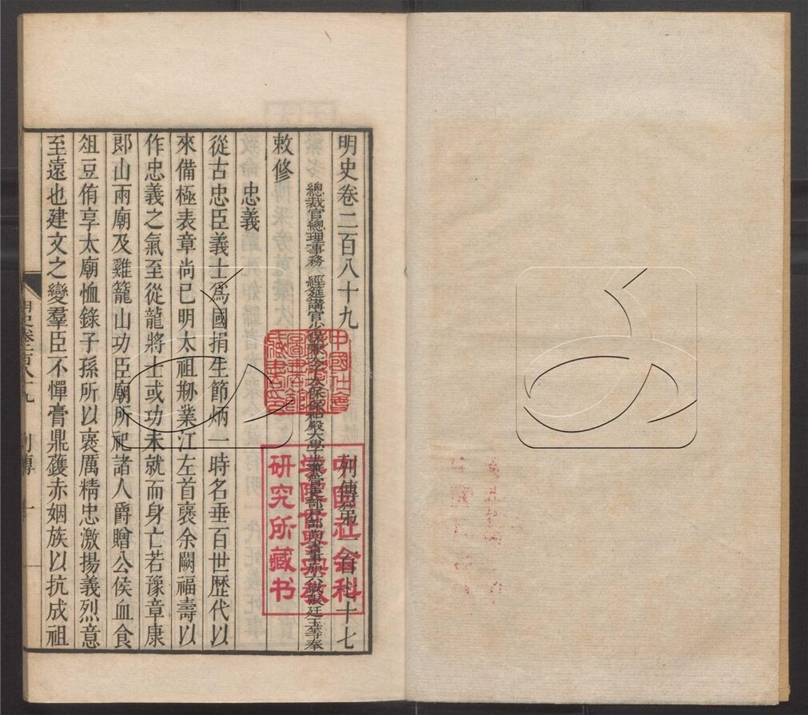 明史卷二百八十九 列傳第一百七十七
總裁官總理事務 經筵講官少保兼太子太保保和殿大學士兼管吏部戶部尚書事加六級張廷玉等奉
敕修
忠義一
從古忠臣義士爲國捐生節炳一時名垂百世歷代以
來備極表章尚已明太祖刱業江左首褒余闕福壽以
作忠義之氣至從龍將士或功未就而身亡若豫章康
郎山兩廟及雞籠山功臣廟所祀諸人爵贈公侯血食
俎豆侑享太廟恤錄子孫所以褒厲精忠激揚義烈意
至遠也建文之變羣臣不憚膏鼎鑊赤姻族以抗成祖
明史卷二百八十九 列傳 一
中國社會科
學院世界宗教
研究所藏书